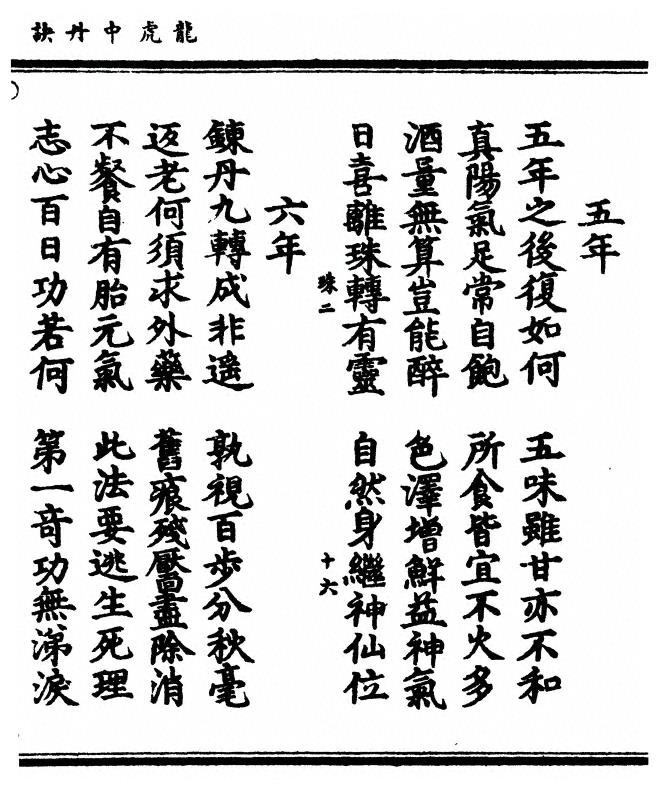 龍虎中丹訣
五年
五年之後復如何 五味雖甘亦不和
真陽氣足常自飽 所食皆宜不火多
酒量無算豈能醉 色澤增鮮益神氣
日喜離珠轉有靈 自然身繼神仙位
珠二 十六
六年
鍊丹九轉成非遥 孰視百步分秋毫
返老何須求外藥 舊痕殘靨盡除消
不餐自有胎元氣 此法要逃生死理
志心百日功若何 第一奇功無涕淚